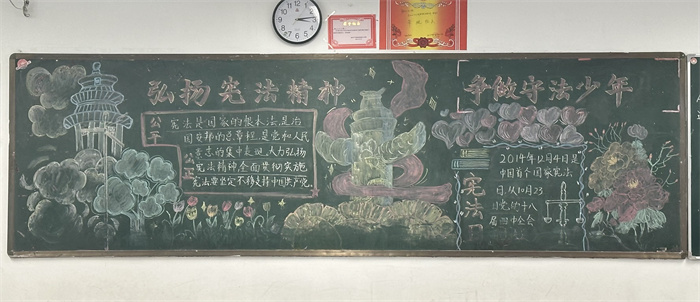 弘扬宪法精神
争做守法少年
公平
公正
宪法是国家的根本法是治
国安邦的总章程是党和人民
意志的集中体现大力弘扬
宪法精神全面贯彻实施
宪法要坚定不移支持中国共产党
宪法日
2014年12月4日是
中国首个国家宪法
日,从10月23
日党的十八
届四中全会